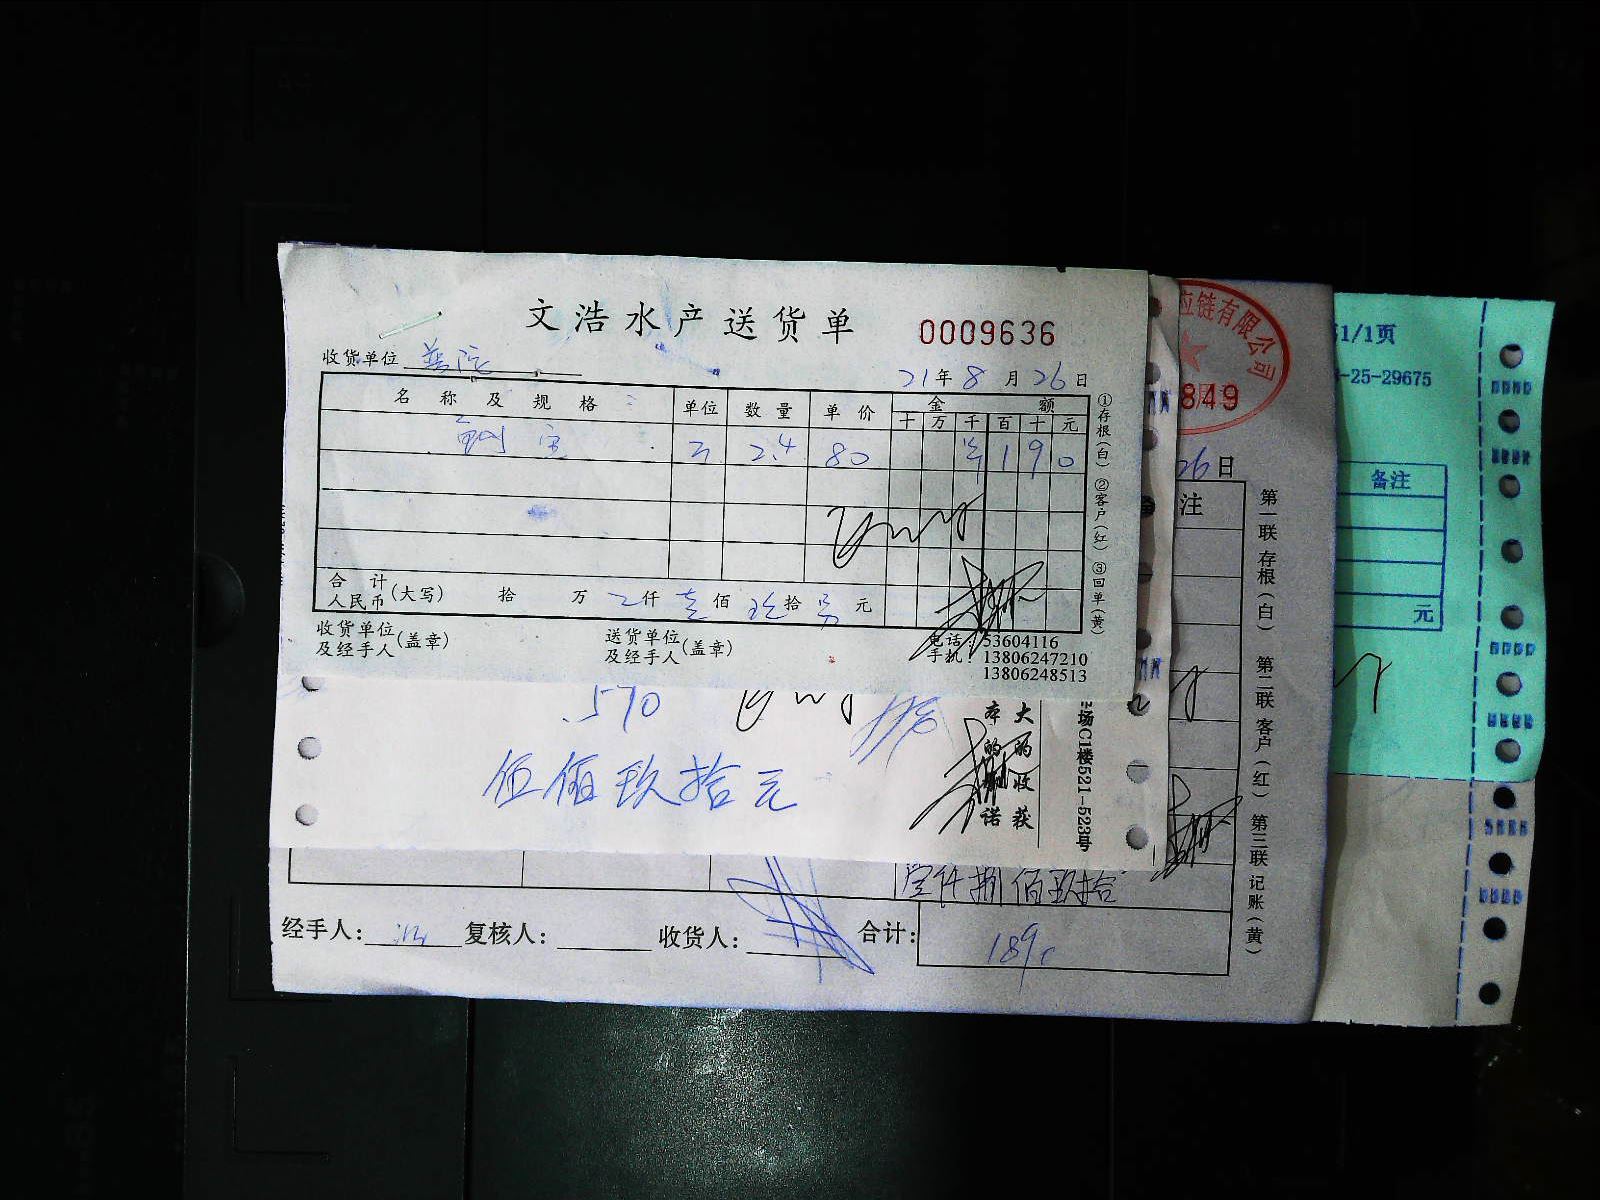 文浩水产送货单
0009636
收货单位 普陀
21年8月26日
名称及规格 单位 数量 单价 金额
十万千百十元
2.4 80 190
合计
人民币(大写) 拾 万 仟 壹佰 玖拾 元
收货单位
及经手人(盖章)
送货单位
及经手人(盖章)
电话:53604116
手机:13806247210
13806248513
①存根(白) ②客户(红) ③回单(黄)
590
伍佰玖拾元
大的收获
的 诺
场C1楼521-523号
应链有限公司
849
26日
注
第一联 存根(白) 第二联 客户(红) 第三联 记账(黄)
壹仟捌佰玖拾
经手人: 复核人: 收货人: 合计: 1890
1/1页
-25-29675
备注
元